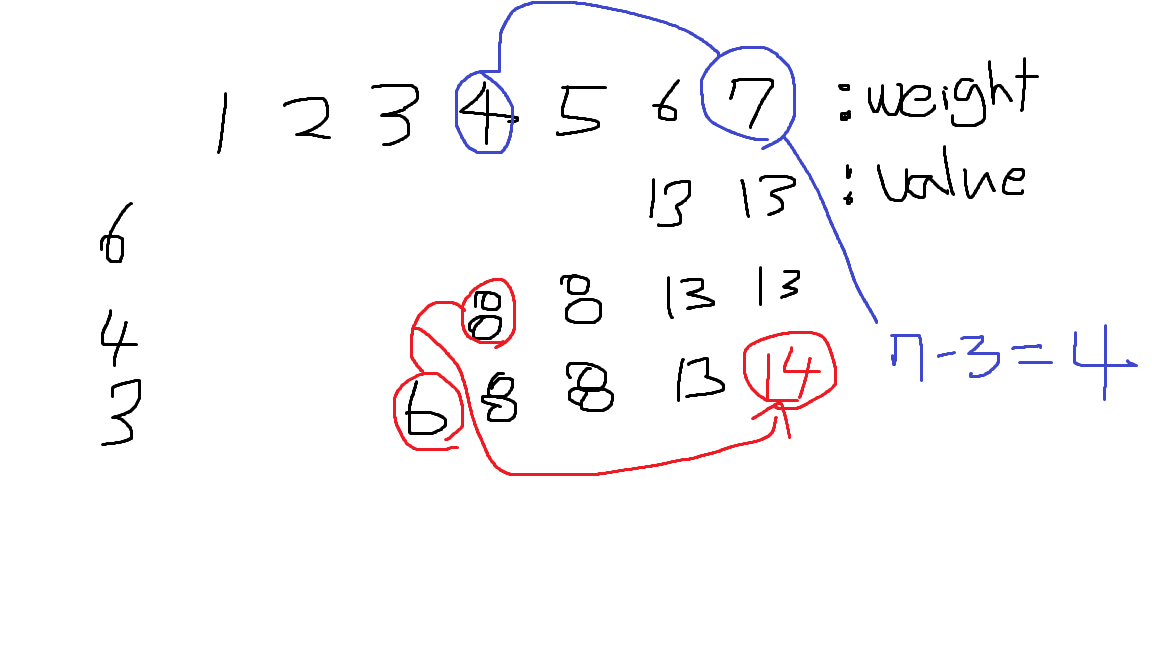 1 2 3 4 5 6 7 : weight
13 13 : value
6
8 8 13 13
4 7-3=4
3 6 8 8 13 14